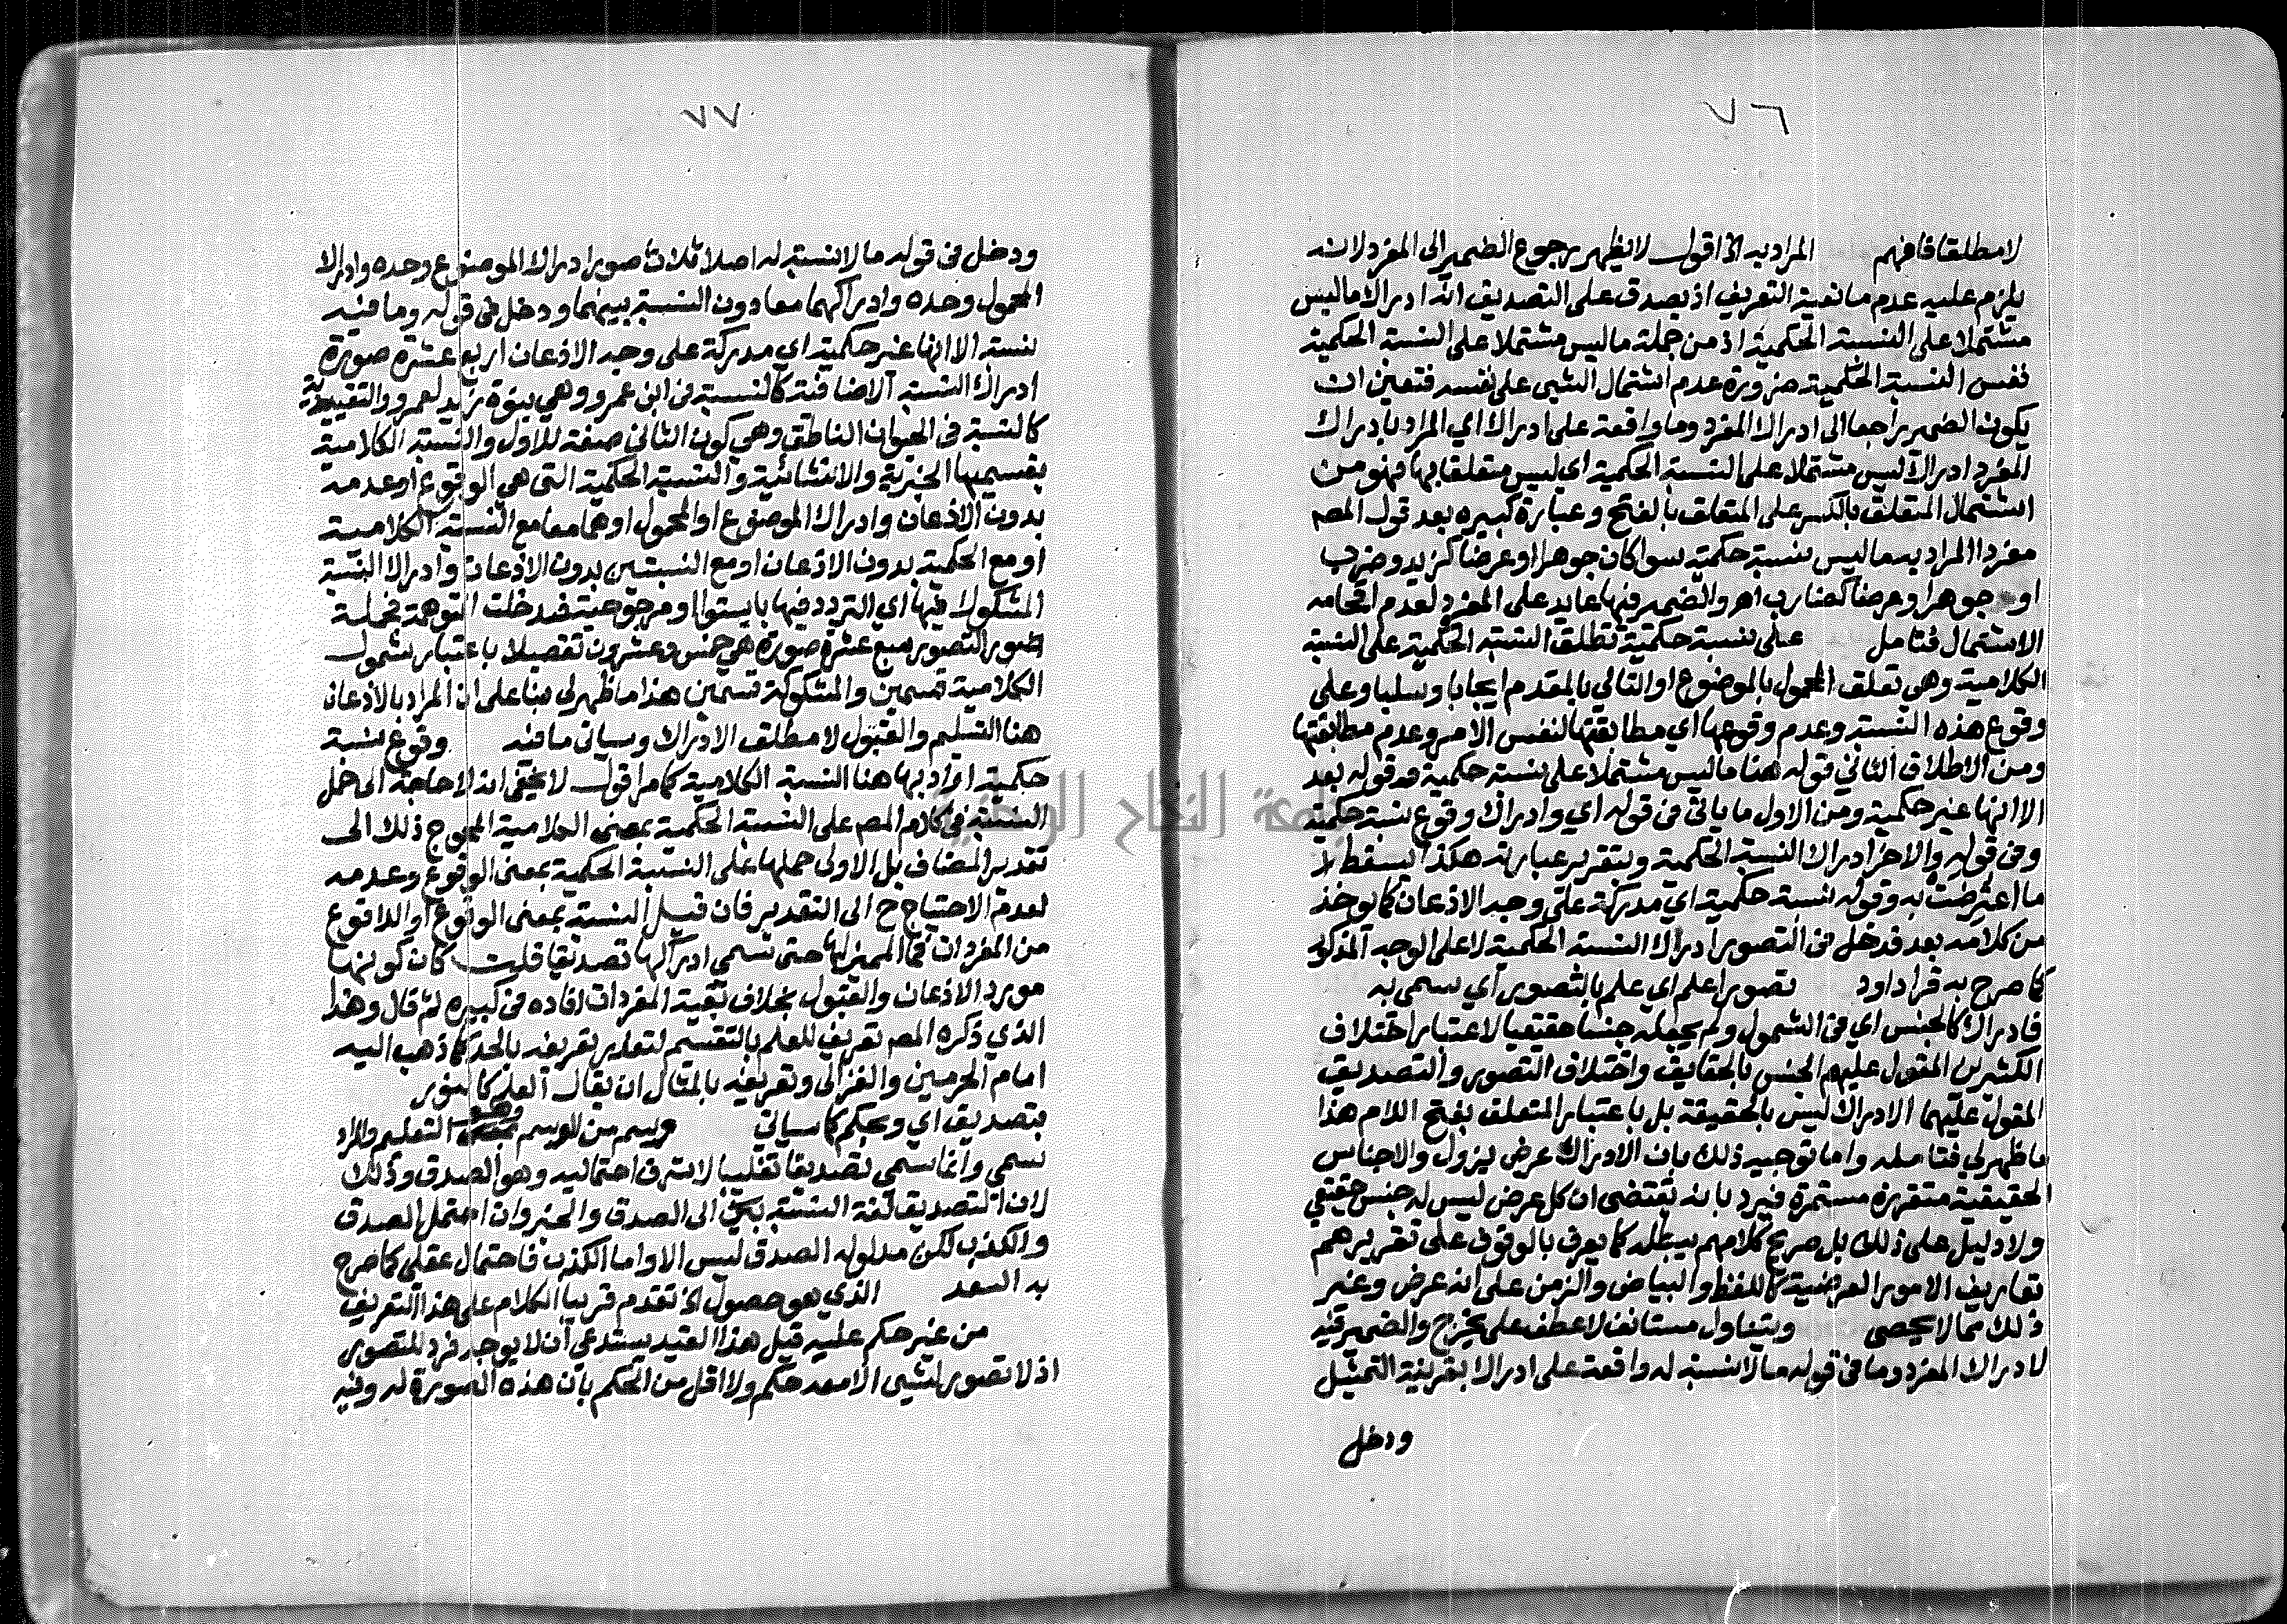 ٧٦
لا مطلقا فافهم المراد به الخ اقول لا يظهر رجوع الضمير الى المفرد لانه
يلزم عليه عدم مانعية التعريف اذ يصدق على التصديق انه ادراك ما ليس
مشتملا على النسبة الحكمية اذ من جملة ما ليس مشتملا على النسبة الحكمية
نفس النسبة الحكمية ضرورة عدم اشتمال الشيى على نفسه فتعين ان
يكون الضمير راجعا الى ادراك المفرد وما واقعة على ادراك اي المراد بادراك
المفرد ادراك ليس مشتملا على النسبة الحكمية اي ليس متعلقا بها فهو من
اشتمال المتعلق بالكسر على المتعلق بالفتح وعبارة كبيره بعد قول المصم
مفردا المراد به ما ليس نسبة حكمية سوا كان جوهرا او عرضا كزيد وضرب
او جوهرا وعرضا كضارب اهر والضمير فيها عايد على المفرد لعدم اقحامه
الاشتمال فتامل على نسبة حكمية تطلق النسبة الحكمية على النسبة
الكلامية وهي تعلق المحمول بالموضوع او التالي بالمقدم ايجابا وسلبا وعلى
وقوع هذه النسبة وعدم وقوعها اي مطابقتها لنفس الامر وعدم مطابقتها
ومن الاطلاق الثاني قوله هنا ما ليس مشتملا على نسبة حكمية وقوله بعد
الا انها غير حكمية ومن الاول ما ياتي في قوله اي وادراك وقوع نسبة حكمية
وفي قوله والاخر ادراك النسبة الحكمية وبتقرير عبارته هكذا يسقط
ما اعترضت به وقوله نسبة حكمية اي مدركة على وجه الاذعان كما يوخذ
من كلامه بعد فدخل في التصور ادراك النسبة الحكمية لا على الوجه المذكور
كما صرح به قرا داود تصورا علم اي علم بالتصور اي سمى به
فادراك كالجنس اي في الشمول ولم يجعله جنسا حقيقيا لاعتبار اختلاف
الكثيرين المقول عليهم الجنس بالحقايق واختلاف التصور والتصديق
المقول عليهما الادراك ليس بالحقيقة بل باعتبار المتعلق بفتح اللام هذا
ما ظهر لي فتامله واما توجيه ذلك بان الادراك عرض يزول والاجناس
الحقيقية متقررة مستمرة فيرد بانه يقتضى ان كل عرض ليس له جنس حقيقي
ولا دليل على ذلك بل صريح كلامهم يبطله كما يعرف بالوقوف على تقريرهم
تعاريف الامور العرضية كاللفظ والبياض والزمن على انه عرض وغير
ذلك مما لا يحصى ويتناول مستانف لا عطف على يخرج والضمير فيه
لادراك المفرد وما في قوله ما لا نسبة له واقعة على ادراك بقرينة التمثيل
ودخل
٧٧
ودخل في قوله ما لا نسبة له اصلا ثلاث صور ادراك الموضوع وحده وادراك
المحمول وحده وادراكهما معا دون النسبة بينهما ودخل في قوله وما فيه
نسبة الا انها غير حكمية اي مدركة على وجه الاذعان اربع عشرة صورة
ادراك النسبة الاضافية كالنسبة في ابن عمرو وهي بنوة زيد لعمرو والتقييدية
كالنسبة في الحيوان الناطق وهي كون الثاني صفة للاول والنسبة الكلامية
بقسيميها الخبرية والانشائية والنسبة الحكمية التي هي الوقوع او عدمه
بدون الاذعان وادراك الموضوع او المحمول او هما معا مع النسبة الكلامية
او مع الحكمية بدون الاذعان او مع النسبتين بدون الاذعان وادراك النسبة
المشكوك فيها اي التردد فيها باستوا او مرجوحية فدخلت التوهمة فجملة
صور التصور سبع عشرة صورة هي خمس وعشرون تفصيلا باعتبار شمول
الكلامية قسمين والمشكوكة قسمين هذا ما ظهر لي بنا على ان المراد بالاذعان
هنا التسليم والقبول لا مطلق الادراك وسياتي ما فيه وقوع نسبة
حكمية اراد بها هنا النسبة الكلامية كما مر اقول لا يخفى انه لا حاجة الى حمل
النسبة في كلام المصم على النسبة الحكمية بمعنى الكلامية المحوج ذلك الى
تقدير المضاف بل الاولى حملها على النسبة الحكمية بمعنى الوقوع وعدمه
لعدم الاحتياج ح الى التقدير فان قيل النسبة بمعنى الوقوع او اللاوقوع
من المفردات فما المميز لها حتى تسمى ادراكها تصديقا قلت كان كونها
مورد الاذعان والقبول بخلاف بقية المفردات افاده في كبيره ثم قال وهذا
الذي ذكره المصم تعريف للعلم بالتقسيم لتعذر تعريفه بالحد كما ذهب اليه
امام الحرمين والغزالى وتعريفه بالمثال ان يقال العلم كالنور
بتصديق اي وبحكم كما سياتي وسم من الوسم وهو التعليم والمراد
نسمى وانما سمى تصديقا تغليبا لاشرف احتماليه وهو الصدق وذلك
لان التصديق لغة النسبة الى الصدق والخبر وان احتمل الصدق
والكذب لكن مدلوله الصدق ليس الا واما الكذب فاحتمال عقلى كما صرح
به السعد الذي هو حصول الخ تقدم قريبا الكلام على هذا التعريف
من غير حكم عليه قيل هذا القيد يستدعى ان لا يوجد فرد للتصور
اذ لا تصور لشيى الا معه حكم ولا اقل من الحكم بان هذه الصورة له وفيه